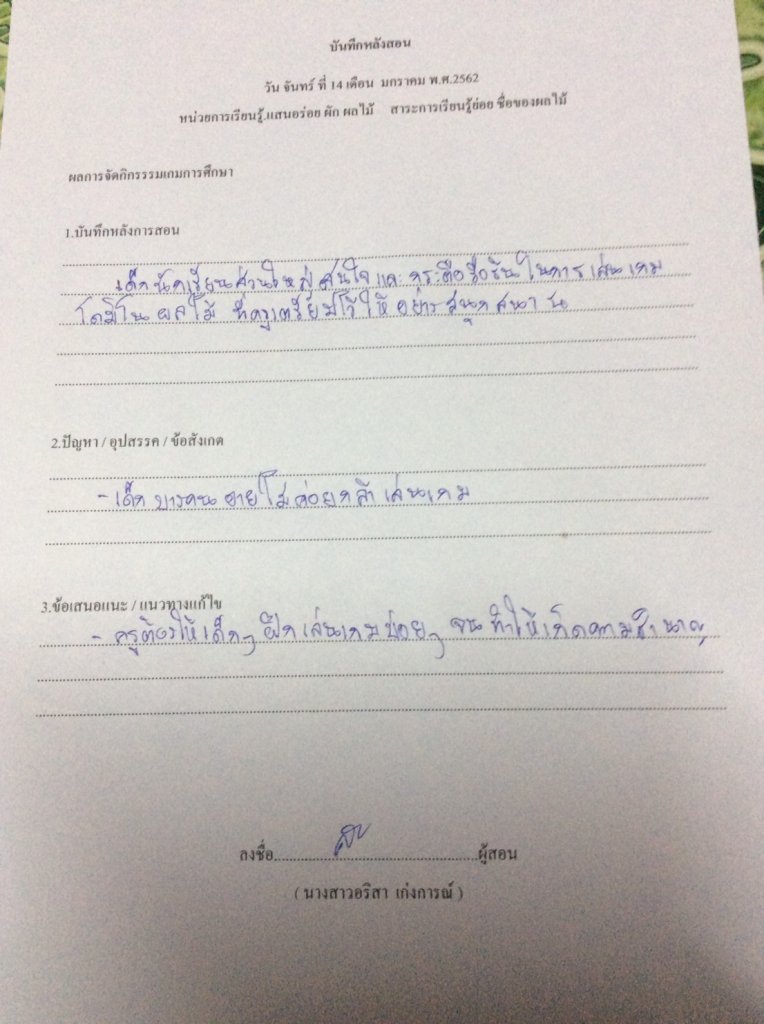 บันทึกหลังสอน
วัน จันทร์ ที่ 14 เดือน มกราคม พ.ศ.2562
หน่วยการเรียนรู้.แสนอร่อย ผัก ผลไม้ สาระการเรียนรู้ย่อย ชื่อของผลไม้
ผลการจัดกิกรรรมเกมการศึกษา
1.บันทึกหลังการสอน
เด็กนักเรียนส่วนใหญ่สนใจและกระตือรือร้นในการเล่นเกม
โดมิโน ผลไม้ ที่ครูเตรียมไว้ให้อย่างสนุกสนาน
2.ปัญหา / อุปสรรค / ข้อสังเกต
- เด็กบางคนอายไม่ค่อยกล้าเล่นเกม
3.ข้อเสนอแนะ / แนวทางแก้ไข
- ครูต้องให้เด็กๆ ฝึกเล่นเกมบ่อยๆ จนทำให้เกิดความชำนาญ
ลงชื่อ..............................................ผู้สอน
( นางสาวอริสา เก่งการณ์ )